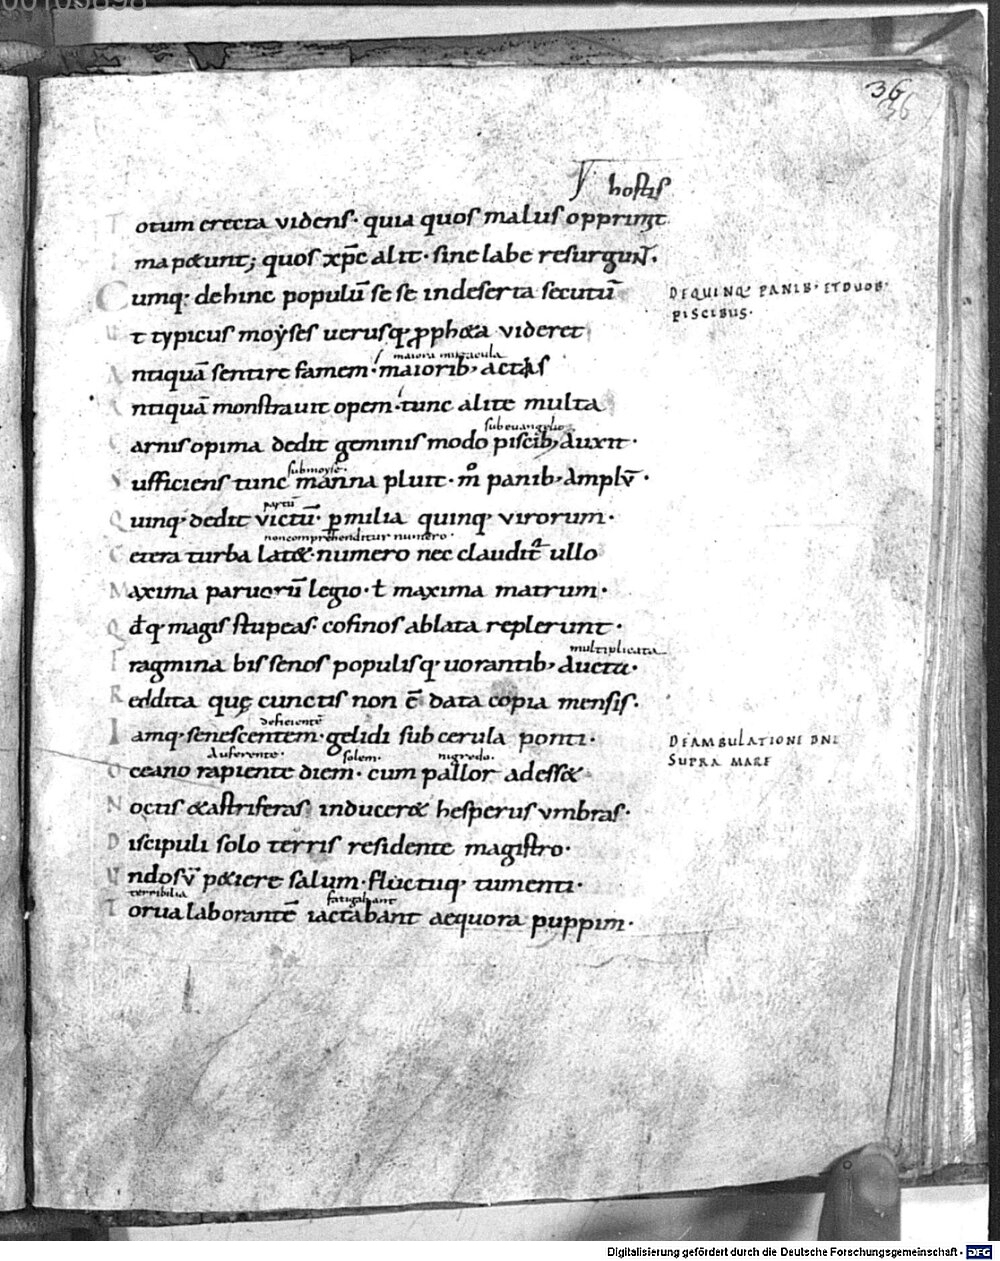 36
36
hostis
Totum erecta videns· quia quos malus opprimit
Ima petunt; quos xp̄c alit· sine labe resurgunt.
Cumq: dehinc populū se se indeserta secutū
DE QUINQ: PANIB· ET DUOB·
PISCIBUS·
Ut typicus moẏses uerusq: ꝓpheta videret
maiora miracula
Antiquā sentire famem· maiorib; actis
Antiquā monstrauit opem· tunc alite multa
sub euangelio
Carnis opima dedit geminis modo piscib; auxit·
sub moyse·
Sufficiens tunc manna pluit· m̊ panib; amplū·
partū
Quinq: dedit victū· ꝑ milia quinq: virorum·
non comprehenditur numero·
Cetera turba latet· numero nec claudit᷑ ullo
Maxima paruorū legio· ł maxima matrum·
Qđq: magis stupeas· cofinos ablata replerunt·
multiplicata
Fragmina bis senos populisq: uorantib; aucta·
Reddita quę cunctis non ē data copia mensis·
deficientē
Iamq: senescentem· gelidi sub cerula ponti·
DE AMBULATIONE DNI
SUPRA MARE
Auferente· solem· nigredo·
Oceano rapiente diem· cum pallor adesset
Noctis & astriferas induceret hesperus vmbras·
Discipuli solo terris residente magistro·
Undosū petiere salum· fluctuq: tumenti·
terribilia fatigabant
Torua laborantē iactabant aequora puppim·
Digitalisierung gefördert durch die Deutsche Forschungsgemeinschaft - DFG